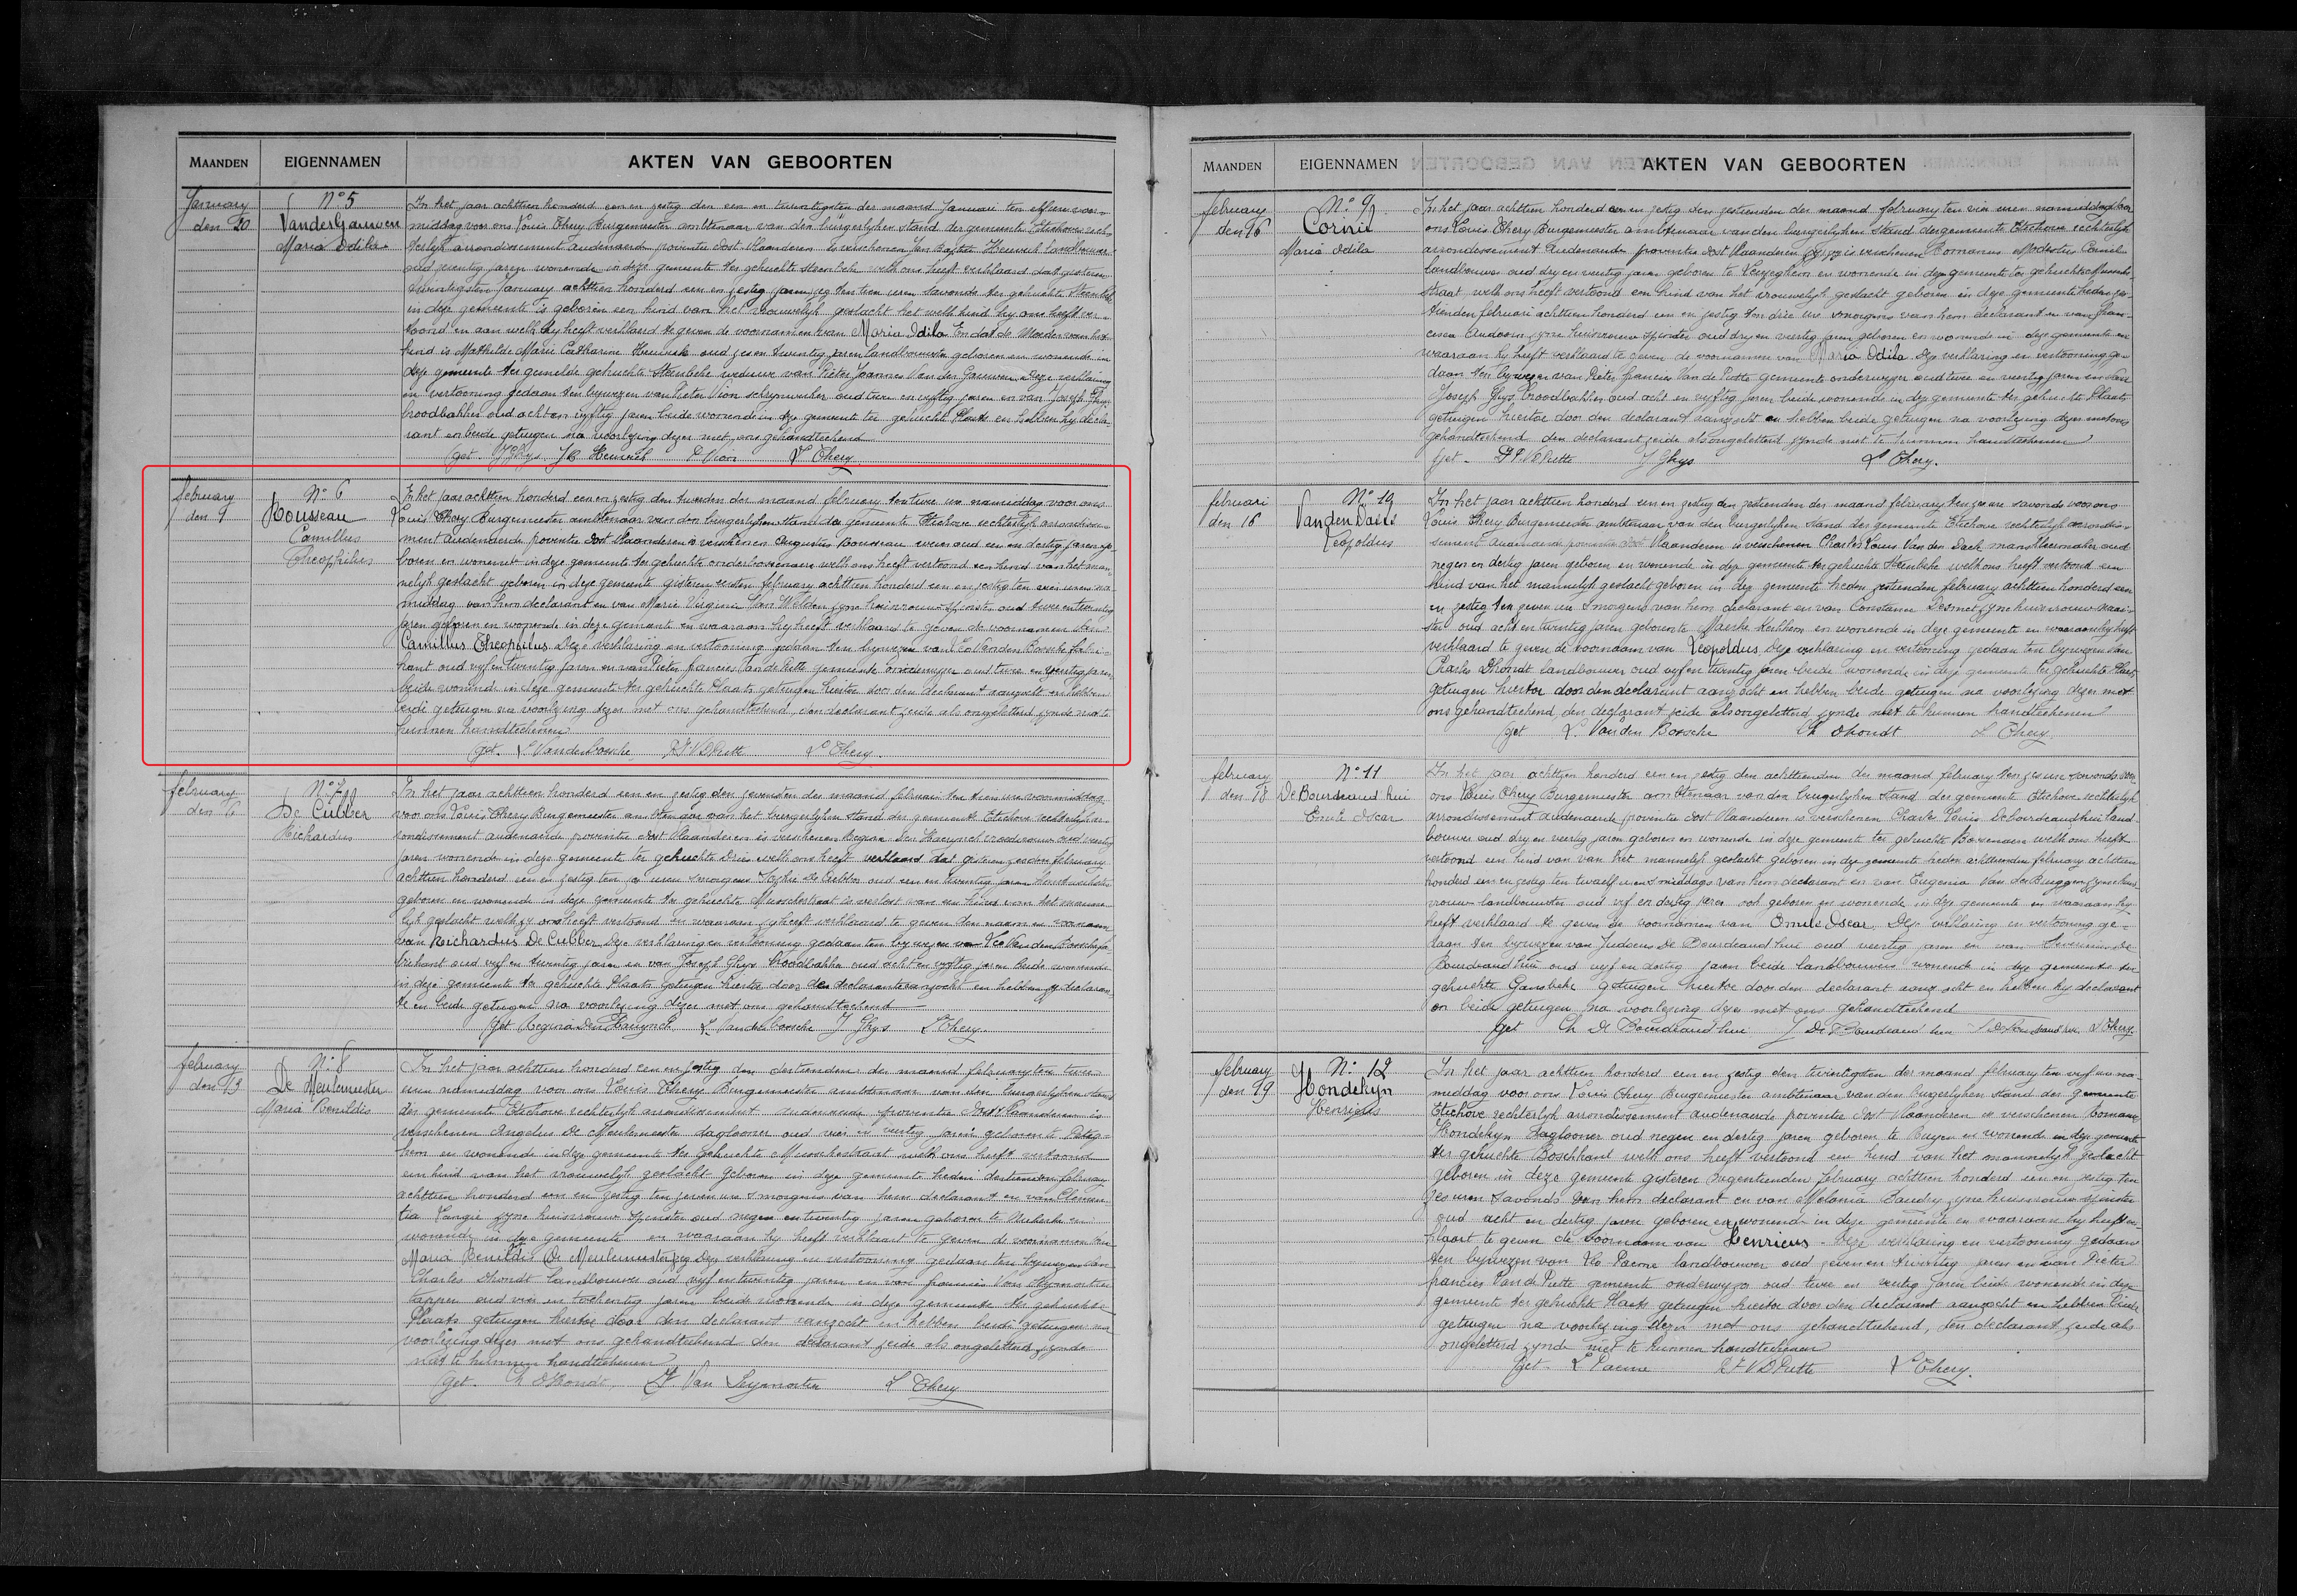 MAANDEN EIGENNAMEN AKTEN VAN GEBOORTEN
January den 20
N° 5
Vander Gauwen
Maria Odila
In het jaar achttien honderd een en zestig den een en twintigsten der maand Januari ten elf ure voor-
middag voor ons Louis Thery Burgemeester ambtenaar van den burgerlyken stand der gemeente Etichove rech-
terlyk arrondissement audenaerde provintie Oost Vlaanderen is verschenen Jan Baptist Heuvick landbouwer
oud zeventig jaren wonende in deze gemeente ter gehuchte Steenbeke welk ons heeft verklaard dat gisteren
twintigsten January achttien honderd een en zestig ten tien uren s'avonds ter gehuchte Steenbeke
in deze gemeente is geboren een kind van het vrouwelyk geslacht het welk kind hy ons heeft ver-
toond en aan welk hy heeft verklaard te geven de voornamen van Maria Odila En dat de Moeder van het
kind is Mathilde Marie Catharine Heuvick oud zes en twintig jaren landbouwster geboren en wonende in
deze gemeente ter gemelde gehuchte Steenbeke weduwe van Pieter Joannes Van der Gauwen. Deze verklaring
en vertooning gedaan ten bywezen van Pieter Vion schrynwerker oud twee en vyftig jaren en van Joseph Ghys
broodbakker oud acht en vyftig jaren beide wonende in deze gemeente ter gehuchte Plaats en hebben hy decla-
rant en beide getuigen na voorlezing dezer met ons gehandteekend
get. J Ghys J B Heuvick P Vion Ls Thery
february den 1
N° 6
Rousseau
Camillus
Theophilus
In het jaar achttien honderd een en zestig den tweeden der maand february ten twee ure namiddag voor ons
Louis Thery Burgemeester ambtenaar van den burgerlyken stand der gemeente Etichove rechterlyk arrondisse-
ment audenaerde provintie Oost Vlaanderen is verschenen Augustus Rousseau wever oud een en dertig jaren ge-
boren en wonende in deze gemeente ter gehuchte onderbossenaere welk ons heeft vertoond een kind van het man-
nelyk geslacht geboren in deze gemeente gisteren eersten february achttien honderd een en zestig ten vier uren na
middag van hem declarant en van Marie Virginie Van Welden zyne huisvrouw spinster oud twee en twintig
jaren geboren en wonende in deze gemeente en waaraan hy heeft verklaard te geven de voornamen van
Camillus Theophilus Deze verklaring en vertooning gedaan ten bywezen van Leo Vanden Bossche fabri-
kant oud vyf en twintig jaren en van Pieter francies Van de Putte gemeente onderwyzer oud twee en veertig jaren
beide wonende in deze gemeente ter gehuchte Plaats getuigen hiertoe door den declarant aanzocht en hebben
beide getuigen na voorlezing dezer met ons gehandteekend, den declarant zeide als ongeletterd zynde niet te
kunnen handteekenen
get. Ls Vandenbossche P F VDPutte Ls Thery.
february den 6
N° 7
De Cubber
Richardus
In het jaar achttien honderd een en zestig den zevensten der maand februari ten tien ure voormiddag
voor ons Louis Thery Burgemeester ambtenaar van het burgerlyken stand der gemeente Etichove rechterlyk ar-
rondissement audenaarde provintie Oost Vlaanderen is verschenen Regina Den Haeynck vroedvrouw oud veertig
jaren wonende in deze gemeente ter gehuchte Dries welk ons heeft verklaard dat gisteren zesden february
achttien honderd een en zestig ten uren s'morgens Sophie De Cubber oud een en twintig jaren
geboren en wonende in deze gemeente ter gehuchte Musschestraat is verlost van een kind van het manne-
lyk geslacht welk zy ons heeft vertoond en waaraan zy heeft verklaard te geven den naam en voornaam
van Richardus De Cubber Deze verklaring en vertooning gedaan ten bywezen van Leo Vanden Bossche fa-
briekant oud vyf en twintig jaren en van Joseph Ghys broodbakker oud acht en vyftig jaren beide wonende
in deze gemeente ter gehuchte Plaats getuigen hiertoe door de declarante aanzocht en hebben zy declaran-
te en beide getuigen na voorlezing dezer met ons gehandteekend
get Regina Den Haeynck L Vandenbossche J Ghys L Thery.
february den 13
N° 8
De Meulemeester
Maria Renildis
In het jaar achttien honderd een en zestig den dertienden der maand february ten twee
uren namiddag voor ons Louis Thery Burgemeester ambtenaar van den burgerlyken stand
der gemeente Etichove rechterlyk arrondissement audenaerde provintie Oost Vlaanderen is
verschenen Angelus De Meulemeester daglooner oud vier en veertig jaren geboren te Peteg-
hem en wonende in deze gemeente ter gehuchte Musschestraat welk ons heeft vertoond
een kind van het vrouwelyk geslacht geboren in deze gemeente heden dertienden february
achttien honderd een en zestig ten zeven ure s'morgens van hem declarant en van Clemen-
tia Langie zyne huisvrouw spinster oud negen en twintig jaren geboren te Nukerke en
wonende in deze gemeente en waaraan hy heeft verklaart te geven de voornamen van
Maria Renildis De Meulemeester Deze verklaring en vertooning gedaan ten bywezen van
Charles Dhondt landbouwer oud vyf en twintig jaren en van francies Van Seymortier
tapper oud vier en tachentig jaren beide wonende in deze gemeente ter gehuchte
Plaats getuigen hiertoe door den declarant aanzocht en hebben beide getuigen na
voorlezing dezer met ons gehandteekend den declarant zeide als ongeletterd zynde
niet te kunnen handteekenen
get. Ch DHondt. Fs Van Seymortier L Thery
MAANDEN EIGENNAMEN AKTEN VAN GEBOORTEN
february den 16
N° 9
Cornil
Maria Odila
In het jaar achttien honderd een en zestig den zestienden der maand february ten vier uren namiddag voor
ons Louis Thery Burgemeester ambtenaar van den burgerlyken stand der gemeente Etichove rechterlyk
arrondissement Audenaarde provintie Oost Vlaanderen is verschenen Romanus Modestus Cornil
landbouwer oud dry en veertig jaren geboren te Vuezeghem en wonende in deze gemeente ter gehuchte Mussche-
straat welk ons heeft vertoond een kind van het vrouwelyk geslacht geboren in deze gemeente heden zes-
tienden februari achttien honderd een en zestig ten drie ure s'morgens van hem declarant en van fran-
cisca Audoorn zyne huisvrouw spinster oud dry en veertig jaren geboren en wonende in deze gemeente en
waaraan hy heeft verklaard te geven de voornamen van Maria Odila. Deze verklaring en vertooning ge-
daan ten bywezen van Pieter francies Van de Putte gemeente onderwyzer oud twee en veertig jaren en van
Joseph Ghys broodbakker oud acht en vyftig jaren beide wonende in deze gemeente ter gehuchte Plaats
getuigen hiertoe door den declarant aangezocht en hebben beide getuigen na voorlezing dezer met ons
gehandteekend den declarant zeide als ongeletterd zynde niet te kunnen handteekenen
get- P F. VDPutte J Ghys Ls Thery.
februari den 16
N° 10
Vanden Daele
Leopoldus
In het jaar achttien honderd een en zestig den zestienden der maand february ten zes ure s'avonds voor ons
Louis Thery Burgemeester ambtenaar van den burgerlyken stand der gemeente Etichove rechterlyk arrondis-
sement audenaerde provintie Oost Vlaanderen is verschenen Charles Louis Van den Daele manskleermaker oud
negen en dertig jaren geboren en wonende in deze gemeente ter gehuchte Steenbeke welk ons heeft vertoond een
kind van het mannelyk geslacht geboren in deze gemeente heden zestienden february achttien honderd een
en zestig ten zeven ure s'morgens van hem declarant en van Constance Desmet zyne huisvrouw naai-
ster oud acht en twintig jaren geboren te Maerke Kerkhem en wonende in deze gemeente en waaraan hy heeft
verklaard te geven de voornaam van Leopoldus. Deze verklaring en vertooning gedaan ten bywezen van
Charles Dhondt landbouwer oud vyf en twintig jaren beide wonende in deze gemeente ter gehuchte Plaats
getuigen hiertoe door den declarant aanzocht en hebben beide getuigen na voorlezing dezer met
ons gehandteekend, den declarant zeide als ongeletterd zynde niet te kunnen handteekenen
get L. Vanden Bossche Ch Dhondt L Thery
february den 18
N° 11
De Bourdeaud'hui
Emile Oscar
In het jaar achttien honderd een en zestig den achttienden der maand february ten zes ure s'avonds voor
ons Louis Thery Burgemeester ambtenaar van den burgerlyken stand der gemeente Etichove rechterlyk
arrondissement audenaerde provintie Oost Vlaanderen is verschenen Charles Louis De bourdeaudhui land-
bouwer oud dry en veertig jaren geboren en wonende in deze gemeente ter gehuchte Bossenaere welk ons heeft
vertoond een kind van van het mannelyk geslacht geboren in deze gemeente heden achttienden february achttien
honderd een en zestig ten twaalf uren s'middags van hem declarant en van Eugenia Van der Bruggen zyne huis-
vrouw landbouwster oud vyf en dertig jaren ook geboren en wonende in deze gemeente en waaraan hy
heeft verklaard te geven de voornamen van Emile Oscar. Deze verklaring en vertooning ge-
daan ten bywezen van Judocus De Bourdeaud'hui oud veertig jaren en van Severinus De
Bourdeaud'hui oud vyf en dertig jaren beide landbouwers wonende in deze gemeente ter
gehuchte Gansbeke getuigen hiertoe door den declarant aanzocht en hebben hy declarant
en beide getuigen na voorlezing dezer met ons gehandteekend
get Ch De Bourdeaud'hui J De Bourdeaud'hui S De bourdeaud'hui L Thery
february den 19
N° 12
Hondekyn
Henricus
In het jaar achttien honderd een en zestig den twintigsten der maand february ten vyf uren na-
middag voor ons Louis Thery Burgemeester ambtenaar van den burgerlyken stand der gemeente
Etichove rechterlyk arrondissement audenaerde provintie Oost Vlaanderen is verschenen Romanus
Hondekyn daglooner oud negen en dertig jaren geboren te Ruyen en wonende in deze gemeente
ter gehuchte Boschkant welk ons heeft vertoond een kind van het mannelyk geslacht
geboren in deze gemeente gisteren negentienden february achttien honderd een en zestig ten
zes uren s'avonds van hem declarant en van Melania Baudry zyne huisvrouw spinster
oud acht en dertig jaren geboren en wonende in deze gemeente en waaraan hy heeft ver-
klaart te geven de voornaam van Henricus. Deze verklaring en vertooning gedaan
ten bywezen van Leo Paeme landbouwer oud zeven en twintig jaren en van Pieter
francies Van de Putte gemeente onderwyzer oud twee en veertig jaren beide wonende in deze
gemeente ter gehuchte Plaats getuigen hiertoe door den declarant aanzocht en hebben beide
getuigen na voorlezing dezer met ons gehandteekend, den declarant zeide als
ongeletterd zynde niet te kunnen handteekenen
get- L Paeme P F VDPutte Ls Thery.